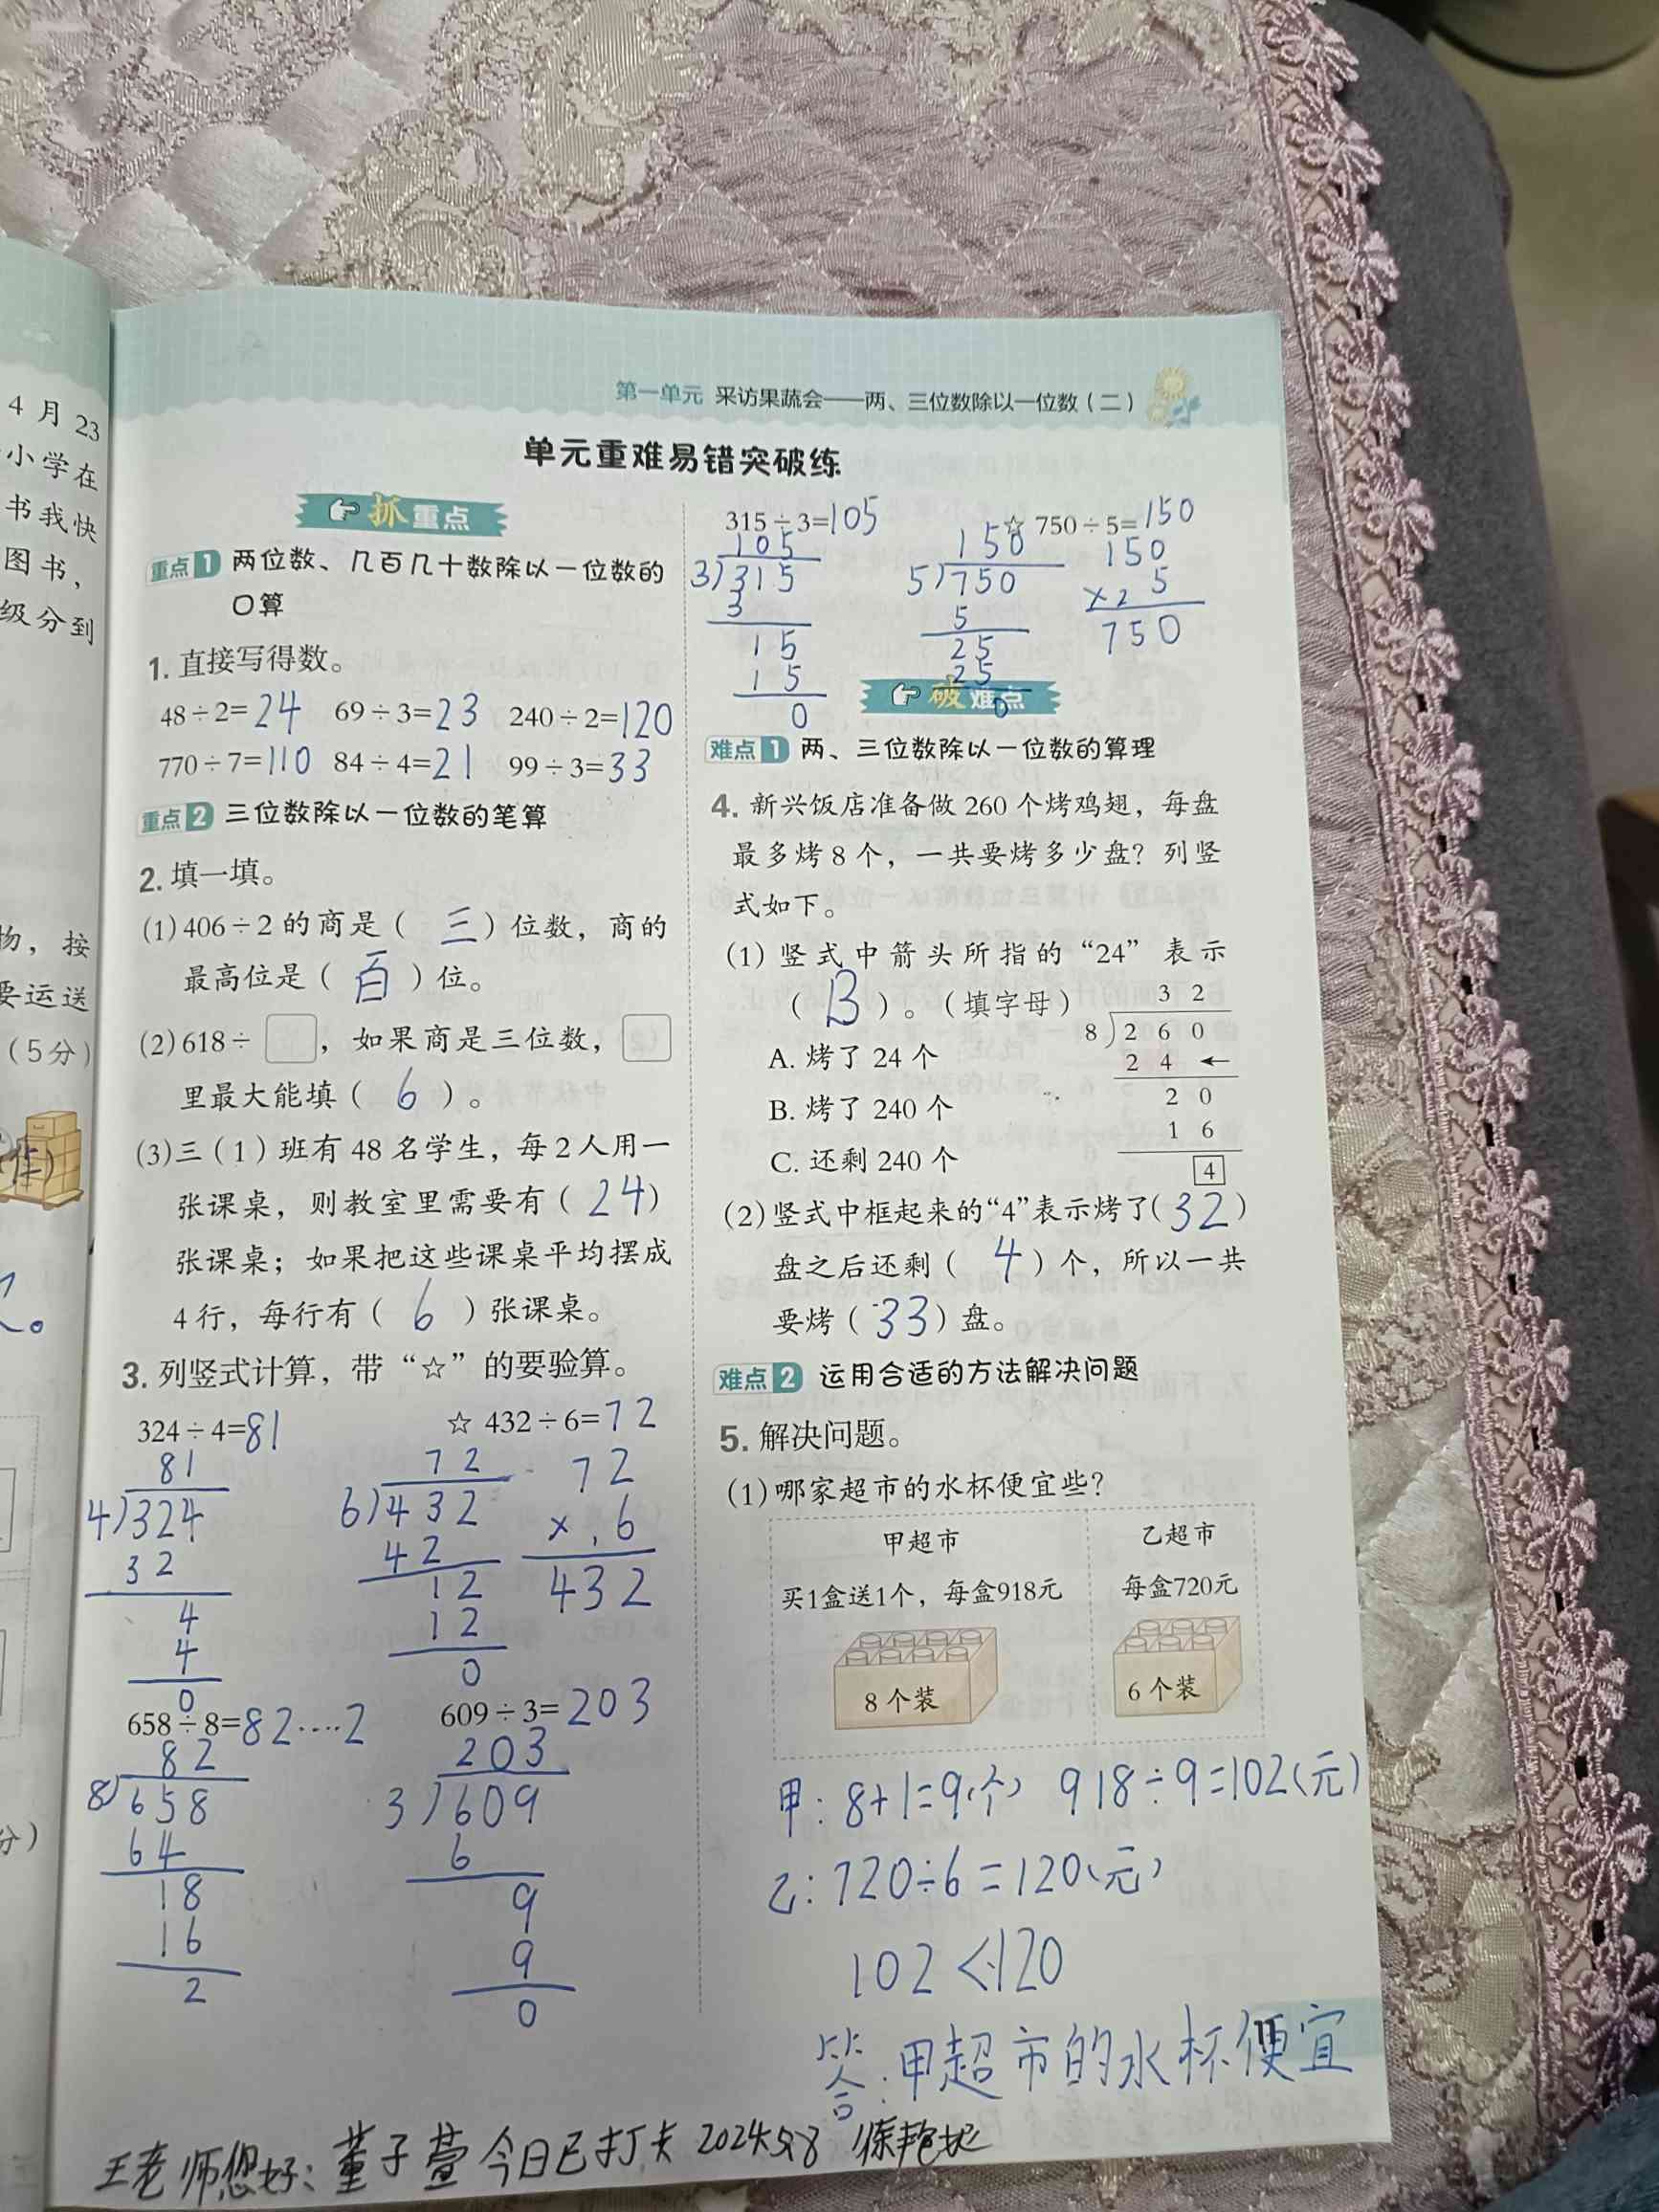 4 月 23
小学在
书我快
图书，
级分到
物，按
要运送
（5分）
分）
第一单元 采访果蔬会——两、三位数除以一位数（二）
单元重难易错突破练
抓重点
重点1 两位数、几百几十数除以一位数的
口算
1. 直接写得数。
48÷2=24 69÷3=23 240÷2=120
770÷7=110 84÷4=21 99÷3=33
重点2 三位数除以一位数的笔算
2. 填一填。
(1)406÷2的商是（三）位数，商的
最高位是（百）位。
(2)618÷□，如果商是三位数，□
里最大能填（6）。
(3)三（1）班有48名学生，每2人用一
张课桌，则教室里需要有（24）
张课桌；如果把这些课桌平均摆成
4行，每行有（6）张课桌。
3. 列竖式计算，带“☆”的要验算。
324÷4=81 ☆432÷6=72
81 72 72
4)324 6)432 ×6
32 42 432
4 12
4 12
0 0
658÷8=82····2 609÷3=203
82 203
8)658 3)609
64 6
18 9
16 9
2 0
315÷3=105 ☆750÷5=150
105 150 150
3)315 5)750 ×2 5
3 5 750
15 25
15 25
0 0
破难点
难点1 两、三位数除以一位数的算理
4. 新兴饭店准备做260个烤鸡翅，每盘
最多烤8个，一共要烤多少盘？列竖
式如下。
(1) 竖式中箭头所指的“24”表示
（B）。（填字母）
A. 烤了24个
B. 烤了240个
C. 还剩240个
3 2
8)2 6 0
2 4 ←
2 0
1 6
4
(2)竖式中框起来的“4”表示烤了(32)
盘之后还剩（4）个，所以一共
要烤（33）盘。
难点2 运用合适的方法解决问题
5. 解决问题。
(1)哪家超市的水杯便宜些？
甲超市 乙超市
买1盒送1个，每盒918元 每盒720元
8个装 6个装
甲：8+1=9(个) 918÷9=102(元)
乙：720÷6=120(元)
102<120
答：甲超市的水杯便宜
11
王老师您好：董子萱今日已打卡 2024.5.8